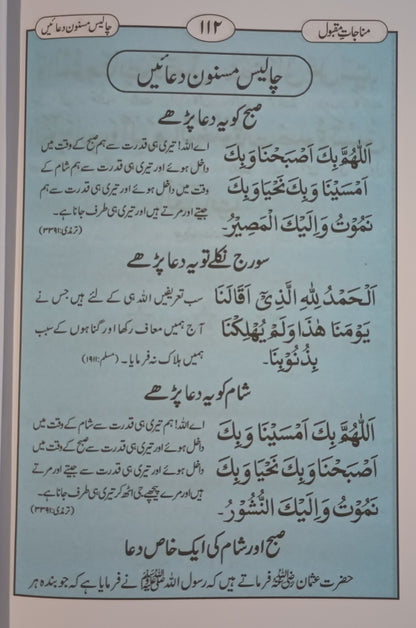 مناجاتِ مقبول
۱۱۲
چالیس مسنون دعائیں
چالیس مسنون دعائیں
صبح کو یہ دعا پڑھے
اَللّٰهُمَّ بِكَ اَصْبَحْنَا وَبِكَ
اَمْسَيْنَا وَبِكَ نَحْيَا وَبِكَ
نَمُوْتُ وَاِلَيْكَ الْمَصِيْرُ۔
اے اللہ! تیری ہی قدرت سے ہم صبح کے وقت میں
داخل ہوئے اور تیری ہی قدرت سے ہم شام کے
وقت میں داخل ہوئے اور تیری ہی قدرت سے ہم
جیتے اور مرتے ہیں اور تیری ہی طرف جانا ہے۔
(ترمذی:۳۳۹۱)
سورج نکلے تو یہ دعا پڑھے
اَلْحَمْدُ لِلّٰهِ الَّذِیْٓ اَقَالَنَا
يَوْمَنَا هٰذَا وَلَمْ يُهْلِكْنَا
بِذُنُوْبِنَا۔
سب تعریفیں اللہ ہی کے لئے ہیں جس نے
آج ہمیں معاف رکھا اور گناہوں کے سبب
ہمیں ہلاک نہ فرمایا۔ (مسلم:۱۹۱۱)
شام کو یہ دعا پڑھے
اَللّٰهُمَّ بِكَ اَمْسَيْنَا وَبِكَ
اَصْبَحْنَا وَبِكَ نَحْيَا وَبِكَ
نَمُوْتُ وَاِلَيْكَ النُّشُوْرُ۔
اے اللہ! ہم تیری ہی قدرت سے شام کے وقت میں
داخل ہوئے اور تیری ہی قدرت سے صبح کے وقت میں
داخل ہوئے اور تیری ہی قدرت سے جیتے اور مرتے
ہیں اور مرے پیچھے جی اٹھ کر تیری ہی طرف جانا ہے۔
(ترمذی:۳۳۹۱)
صبح اور شام کی ایک خاص دعا
حضرت عثمان رضی اللہ عنہ فرماتے ہیں کہ رسول اللہ ﷺ نے فرمایا ہے کہ جو بندہ ہر